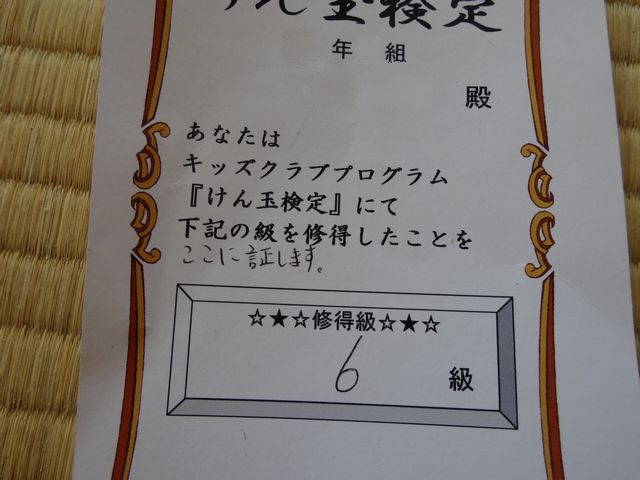 けん玉検定
年 組
殿
あなたは
キッズクラブプログラム
『けん玉検定』にて
下記の級を修得したことを
ここに証します。
☆★☆修得級☆★☆
6 級